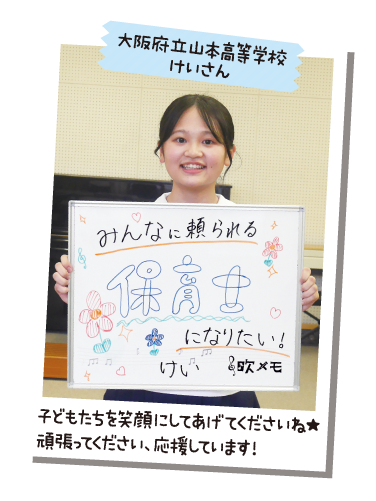 大阪府立山本高等学校
けいさん
みんなに頼られる
保育士
になりたい!
けい 吹メモ
子どもたちを笑顔にしてあげてくださいね★
頑張ってください、応援しています!